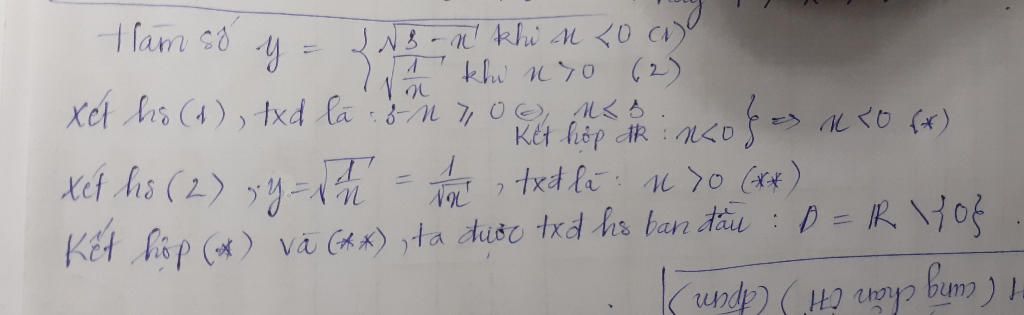 Hàm số y = { √(3-x) khi x < 0 (1)
√(1/x) khi x > 0 (2)
Xét hs (1), txđ là : 3-x ⩾ 0 ⇔ x ≤ 3
Kết hợp đk : x<0 } => x < 0 (*)
Xét hs (2) , y = √(1/x) = 1/√x , txđ là : x > 0 (**)
Kết hợp (*) và (**) , ta được txđ hs ban đầu : D = R \ {0}
(cùng chắn (đpcm)